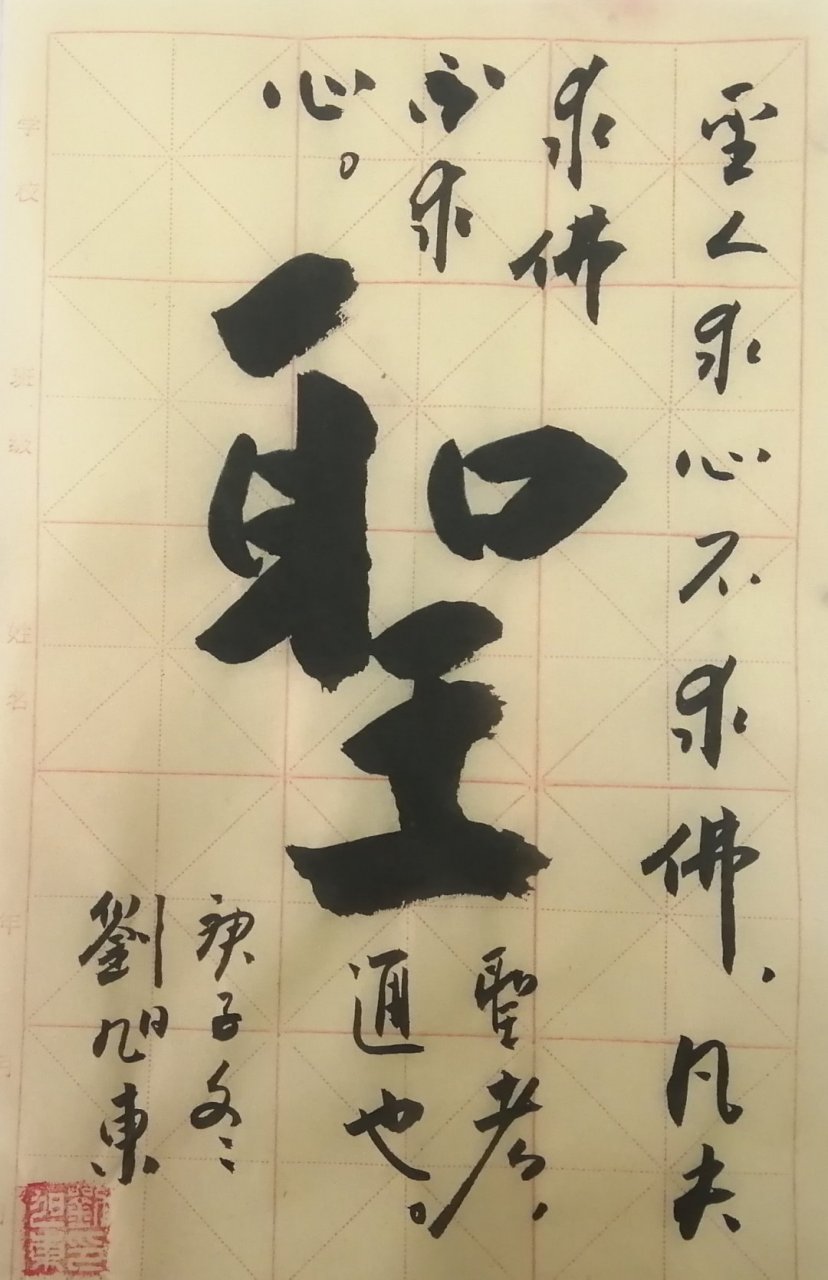 聖人求心不求佛，凡夫
求佛
不求
心。
聖
聖者，
通也。
庚子冬
劉旭東
劉印
旭東
学校
班级
姓名
年